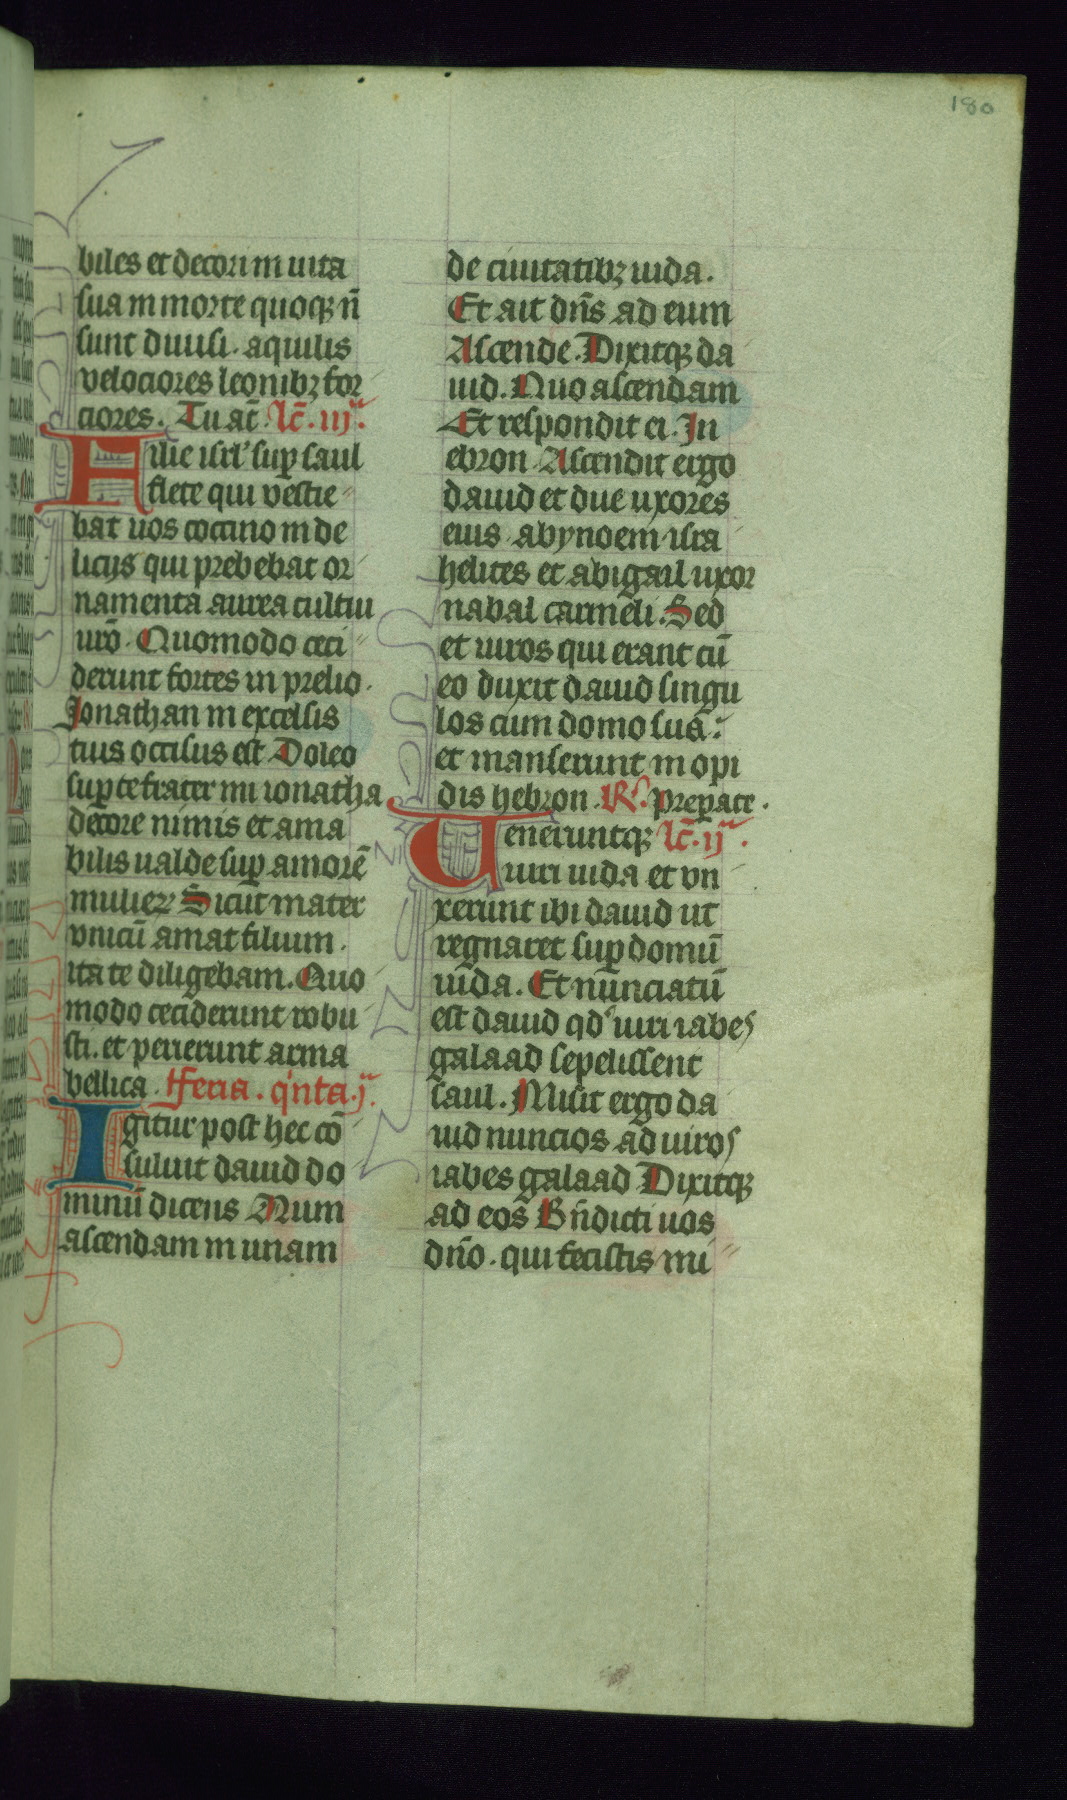 180
biles et decori in uita
sua in morte quoqꝫ n̄
sunt diuisi. aquilis
velociores leonibꝫ for
ciores. Tu aūt. lc̄. iij.
Filie isrl' suꝑ saul
flete qui vestie
bat uos coccino in de
licijs qui prebebat or
namenta aurea cultui
ur̄o. Quomodo ceci
derunt fortes in prelio.
Jonathan in excelsis
tuis occisus est Doleo
suꝑ te frater mi ionatha
decore nimis et ama
bilis ualde suꝑ amorē
mulieꝝ Sicut mater
vnicū amat filium.
ita te diligebam. Quo
modo ceciderunt robu
sti. et perierunt arma
bellica. Feria. qͥnta. j.
Igitur post hec cō
suluit dauid do
minū dicens Num
ascendam in unam
de ciuitatibꝫ iuda.
Et ait dn̄s ad eum
Ascende. Dixitqꝫ da
uid. Quo ascendam
Et respondit ei. In
ebron Ascendit ergo
dauid et due uxores
eius abynoem isra
helites et abigail uxor
nabal carmeli. Sed
et uiros qui erant cū
eo duxit dauid singu
los cum domo sua.
et manserunt in opi
dis hebron. R. preparate.
Ueneruntqꝫ lc̄. ij.
uiri iuda et vn
xerunt ibi dauid ut
regnaret suꝑ domū
iuda. Et nunciatū
est dauid qd' uiri iabes
galaad sepelissent
saul. Misit ergo da
uid nuncios ad uiros
iabes galaad Dixitqꝫ
ad eos Bn̄dicti uos
dn̄o. qui fecistis mi